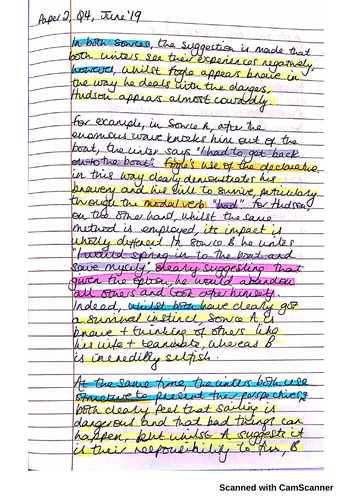 Paper 2, Q4, June '19
In both sources, the suggestion is made that
both writers see their experiences negatively,
however, whilst Fogle appears brave in
the way he deals with the danger,
Hudson appears almost cowardly.
For example, in Source A, after the
enormous wave knocks him out of the
boat, the writer says "I had to get back
on to the boat". Fogle's use of the declarative
in this way clearly demonstrates his
bravery and his will to survive, particularly
through the modal verb "had". For Hudson
on the other hand, whilst the same
method is employed, its impact is
wholly different. In Source B he writes
"I would spring in to the boat and
save myself", clearly suggesting that
given the option, he would abandon
all others and look after himself.
Indeed, whilst both have clearly got
a survival instinct, Source A is
brave + thinking of others like
his wife + teammate, whereas B
is incredibly selfish.
At the same time, the writers both use
structure to present their perspectives
both clearly feel that sailing is
dangerous and that bad things can
happen, but whilst A suggests it
is their responsibility to , B
Scanned with CamScanner